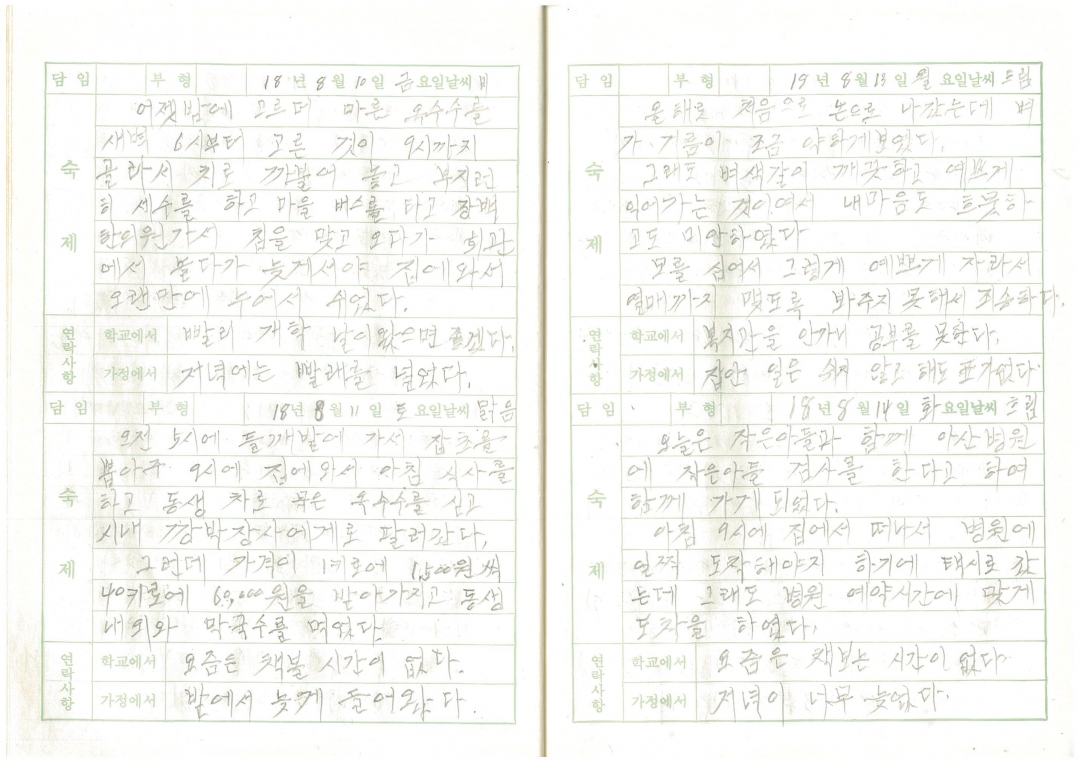 담 임 부 형 18 년 8 월 10 일 금 요일날씨 비
어젯밤에 고르더 마른 옥수수를
새벽 6시부터 고른 것이 9시까지
숙 골라서 치로 까불어 놓고 부지런
히 세수를 하고 마을 버스를 타고 장백
제 한의원가서 침을 맞고 오다가 회관
에서 놀다가 늦게서야 집에와서
오랜만에 누어서 쉬었다.
연락사항 학교에서 빨리 개학 날이왔으면 좋겠다.
가정에서 저녁에는 빨래를 널었다.
담 임 부 형 18 년 8 월 11 일 토 요일날씨 맑음
오전 5시에 들깨밭에 가서 잡초을
뽑아주 9시에 집에와서 아침 식사를
숙 하고 동생 차로 옥수수를 싣고
시내 강박장사에게로 팔러간다,
제 그런데 가격이 키로에 1,500원 씩
40키로에 60,000원을 받아가지고 동생
내외와 막국수를 먹었다.
연락사항 학교에서 요즘은 책볼 시간이 없다.
가정에서 밭에서 늦게 들어왔다.
담 임 부 형 19 년 8 월 13 일 월 요일날씨 흐림
올해로 처음으로 논으로 나갔는데 벼
가 기름이 조금 약하게보였다.
숙 그래도 벼색갈이 깨끗하고 예쁘게
익어가는 것이여서 내마음도 흐뭇하
제 고도 미안하였다
모를 심어서 그렇게 예쁘게 자라서
열매까지 맺도록 봐주지 못해서 죄송하다.
연락사항 학교에서 복지관을 안가니 공부를 못한다,
가정에서 집안 일은 쉬지 않고 해도 표가없다.
담 임 부 형 18 년 8 월 14 일 화 요일날씨 흐림
오늘은 작은아들과 함께 아산병원
에 작은아들 검사를 한다고 하여
숙 함께 가게 되었다.
아침 9시에 집에서 떠나서 병원에
제 일찍 도착해야지 하기에 택시로 갔
는데 그래도 병원 예약시간에 맞게
도착을 하였다.
연락사항 학교에서 요즘은 책보는 시간이 없다.
가정에서 저녁이 너무 늦었다.